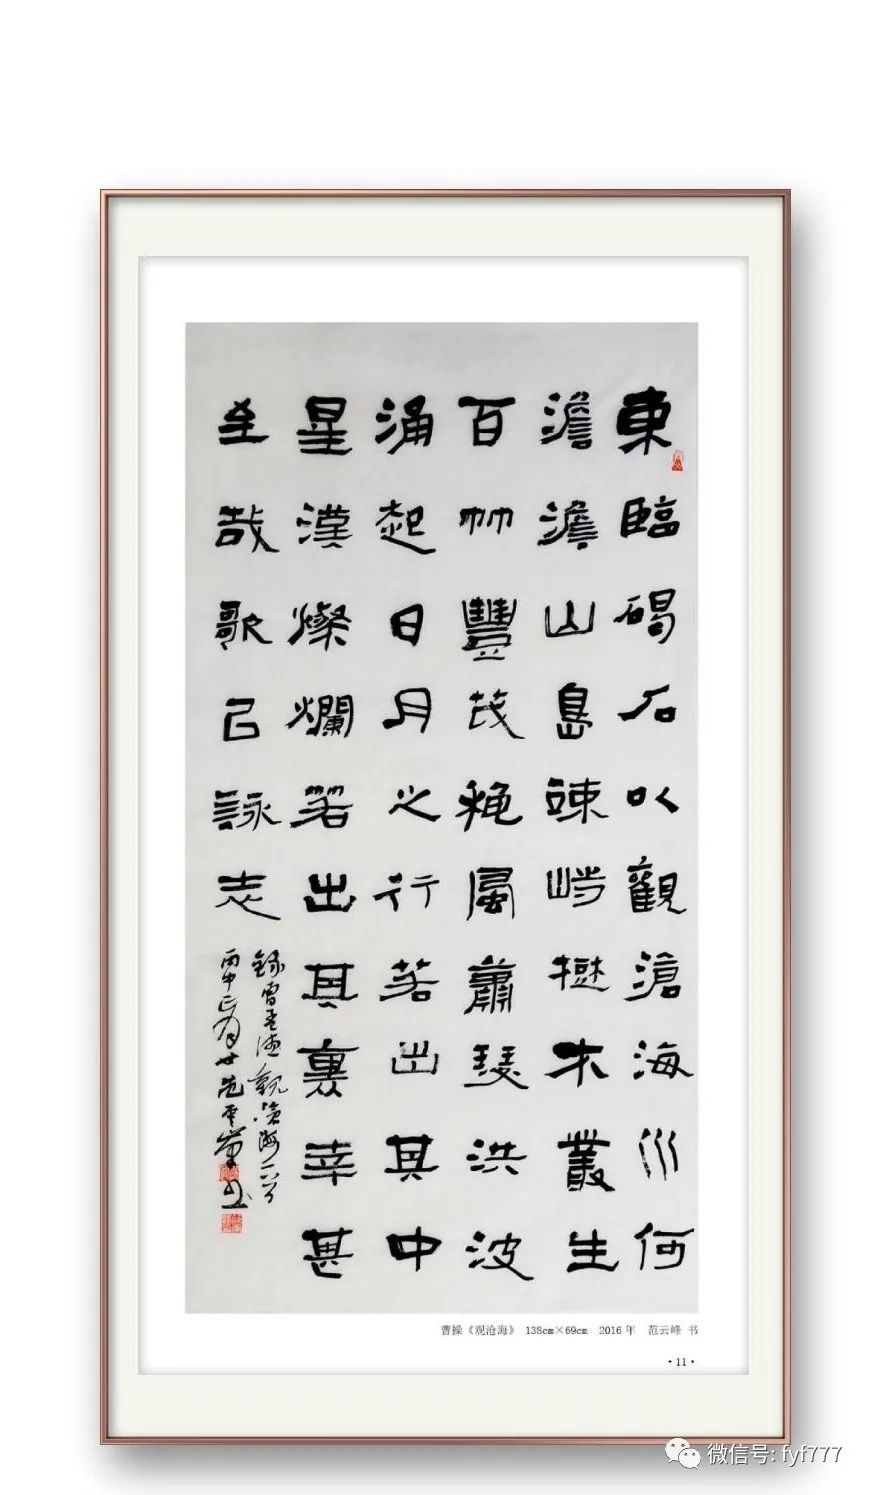 東臨碣石以觀滄海水何
澹澹山島竦峙樹木叢生
百艸豐茂穐風蕭瑟洪波
涌起日月之行若出其中
星漢燦爛若出其裏幸甚
至哉歌以詠志
錄曹孟德觀滄海一首
丙申正月廿范雲峰書
曹操《观沧海》 138cm×69cm 2016年 范云峰 书
·11·
微信号: fyf777